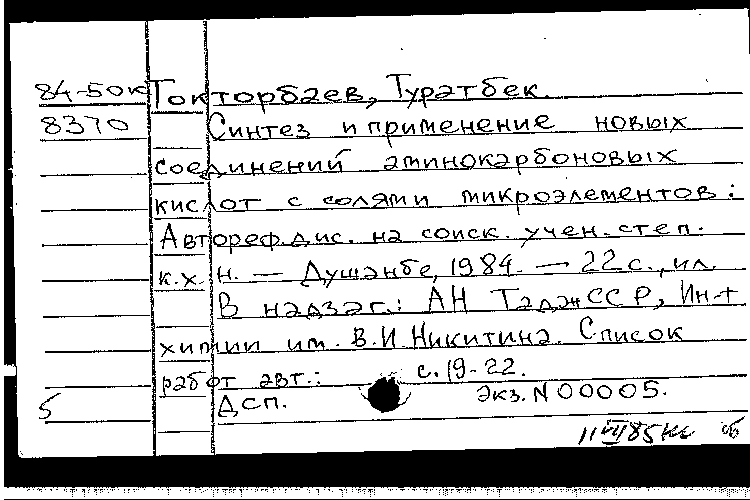 84-50к Токторбаев, Туратбек.
8370 Синтез и применение новых
соединений аминокарбоновых
кислот с солями микроэлементов:
Автореф. дис. на соиск. учен. степ.
к.х.н. — Душанбе, 1984. — 22 с., ил.
В надзаг.: АН ТаджССР, Ин-т
химии им. В.И. Никитина. Список
работ авт.: с. 19-22.
5 ДСП. Экз. N 00005.
11 VII 85